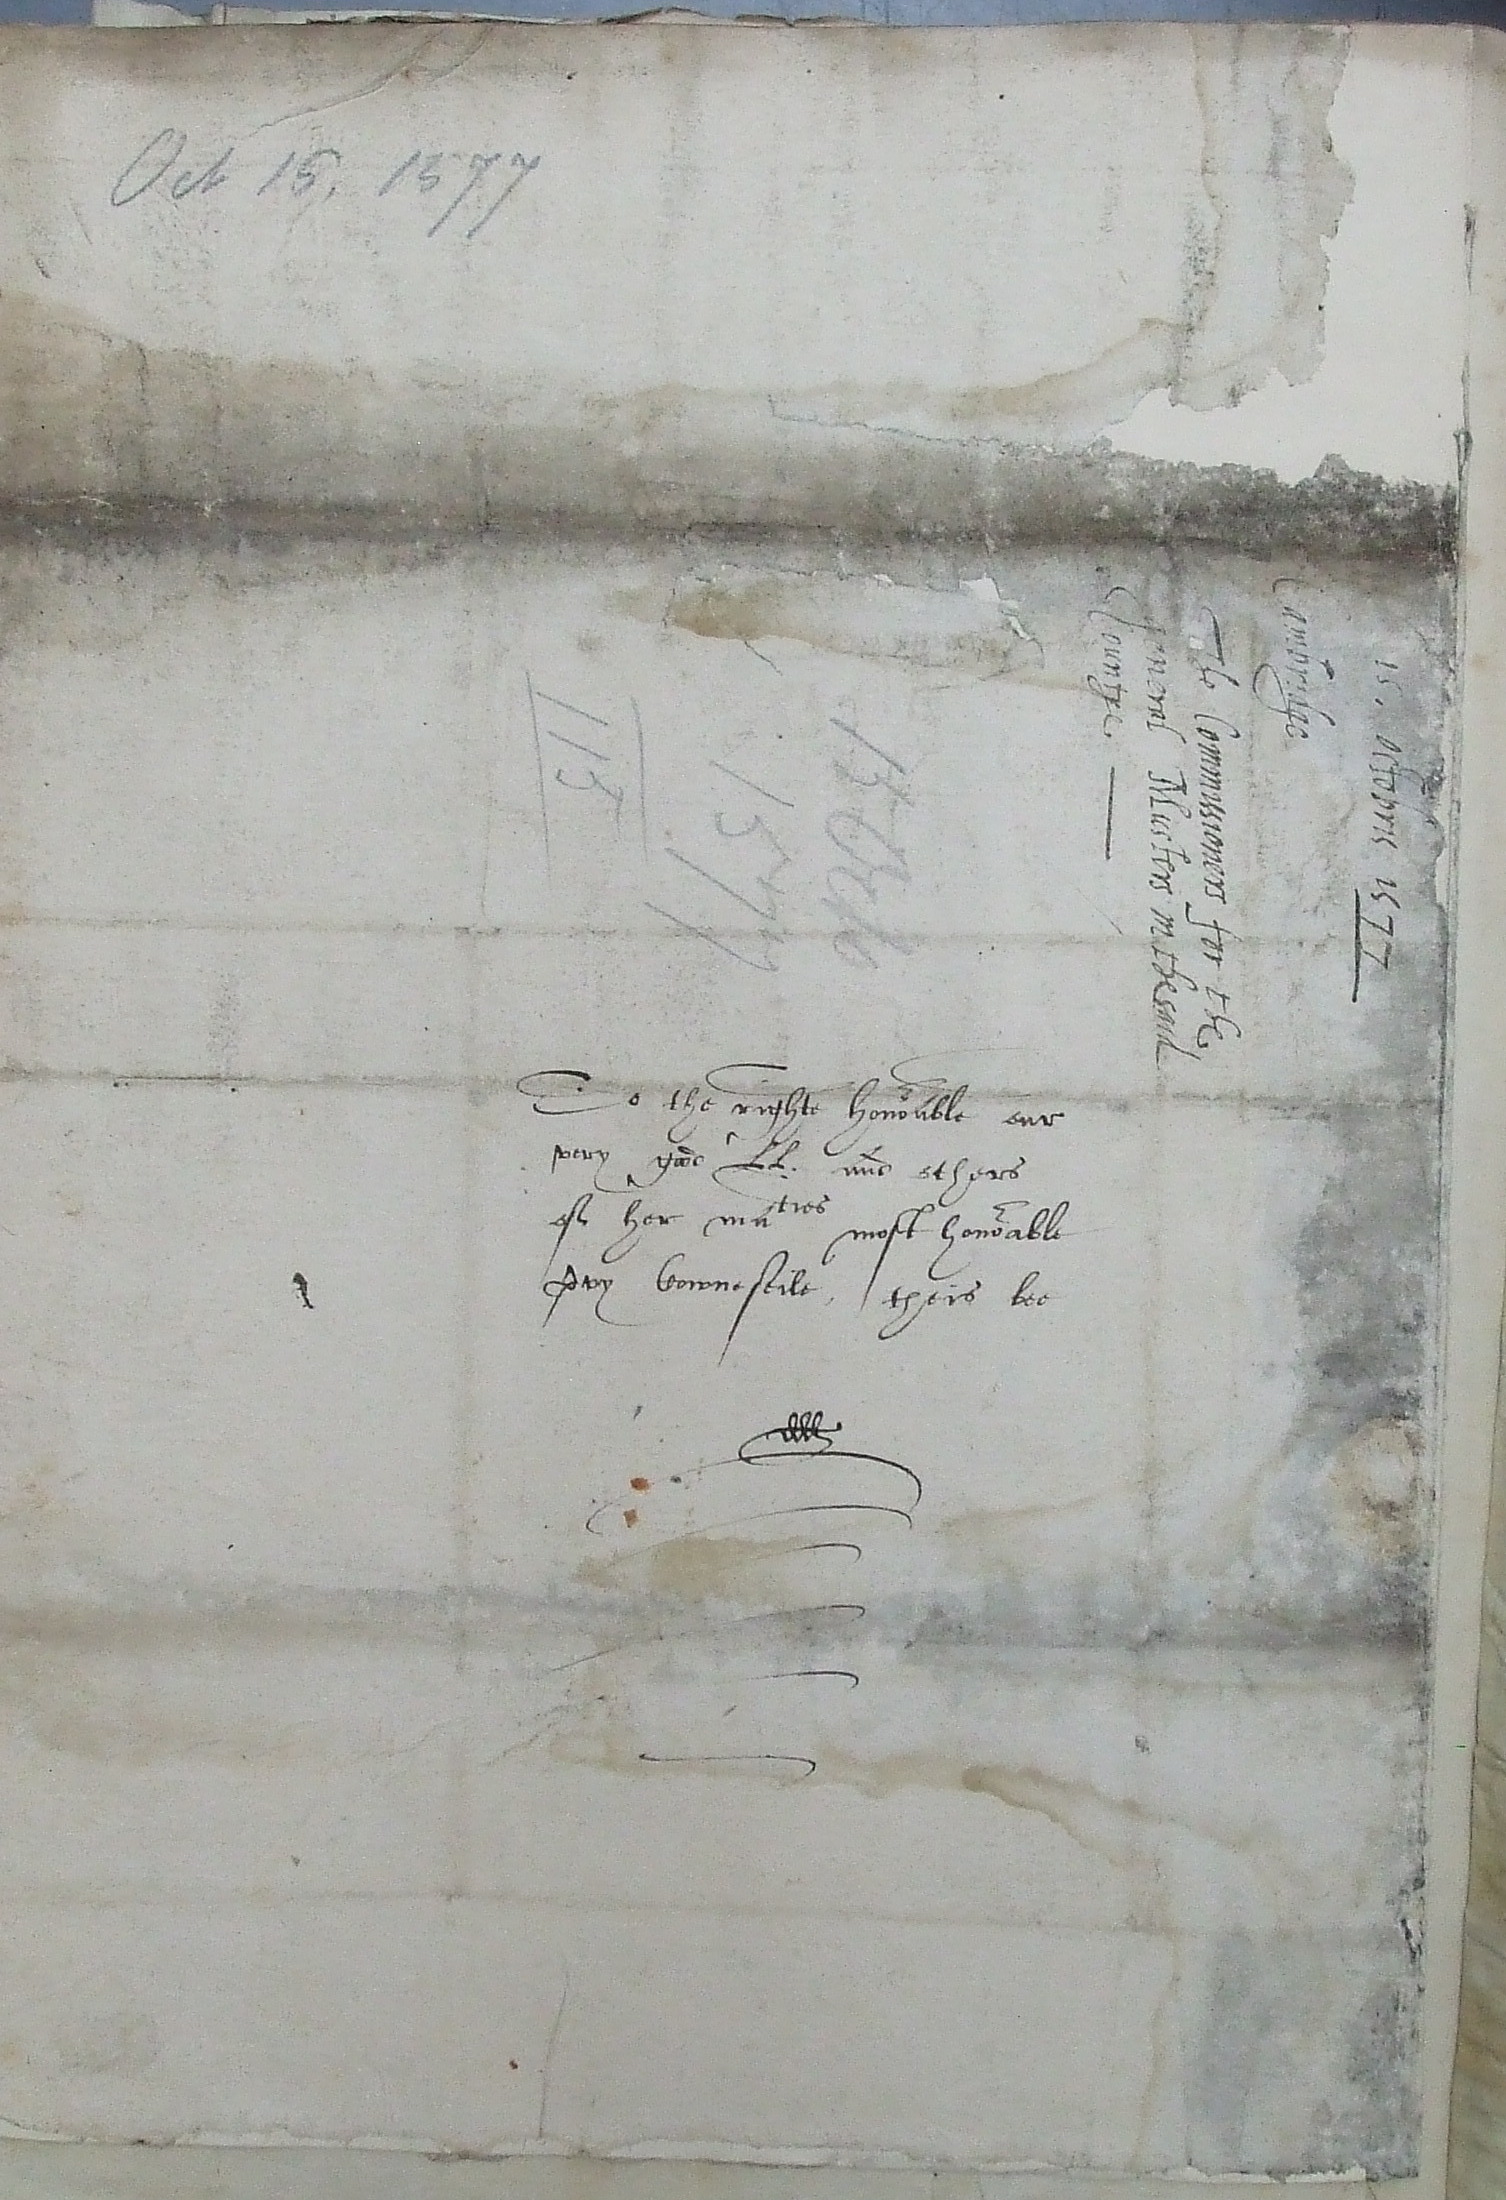 Oct 15, 1577
15. Octobris 1577
Cambridge
The Commissioners for the
generall Musters in the said
Countye
15 Octo
1577
115
To the righte honorable our
very good LL. and others
of her maties most honorable
pvy Cownseile, theis bee